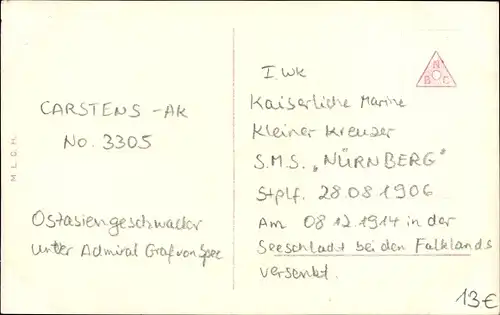 CARSTENS - AK
No. 3305
Ostasiengeschwader
unter Admiral Graf von Spee
M.L.G.H.
N
B C
I. WK
Kaiserliche Marine
Kleiner Kreuzer
S.M.S. „NÜRNBERG"
Stplf. 28.08.1906
Am 08.12.1914 in der
Seeschlacht bei den Falklands
versenkt.
13€